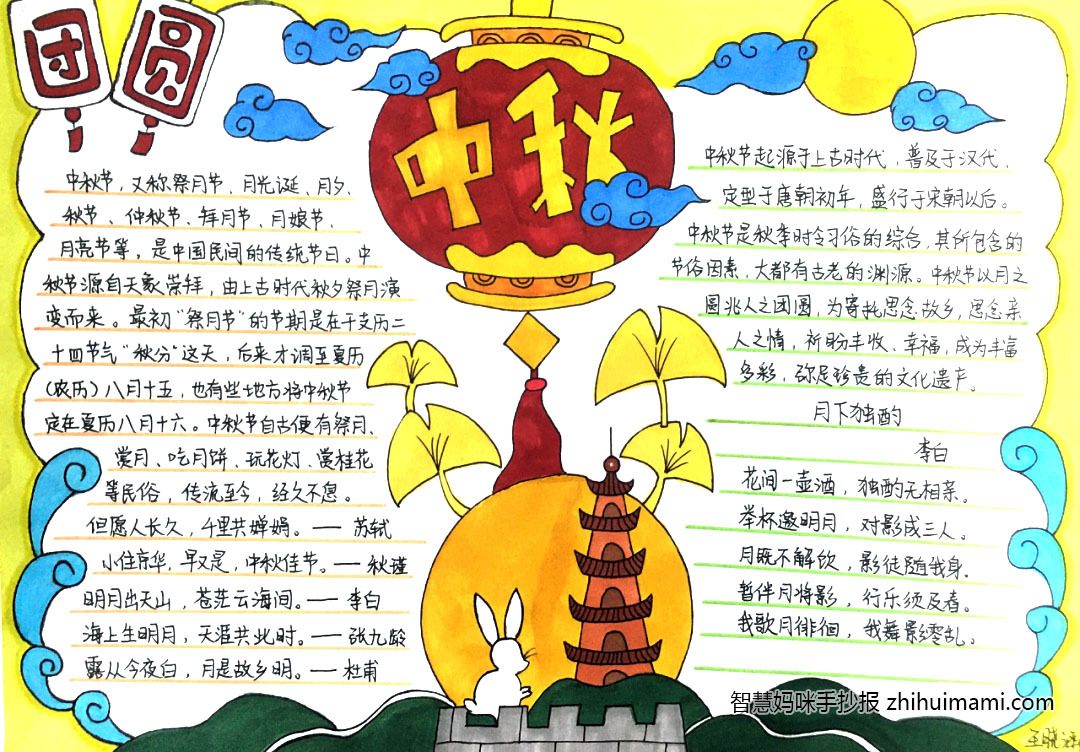 团圆
中秋
中秋节，又称祭月节、月光诞、月夕、
秋节、仲秋节、拜月节、月娘节、
月亮节等，是中国民间的传统节日。中
秋节源自天象崇拜，由上古时代秋夕祭月演
变而来。最初“祭月节”的节期是在干支历二
十四节气“秋分”这天，后来才调至夏历
（农历）八月十五，也有些地方将中秋节
定在夏历八月十六。中秋节自古便有祭月、
赏月、吃月饼、玩花灯、赏桂花
等民俗，传流至今，经久不息。
但愿人长久，千里共婵娟。——苏轼
小住京华，早又是，中秋佳节。——秋瑾
明月出天山，苍茫云海间。——李白
海上生明月，天涯共此时。——张九龄
露从今夜白，月是故乡明。——杜甫
中秋节起源于上古时代，普及于汉代、
定型于唐朝初年，盛行于宋朝以后。
中秋节是秋季时令习俗的综合，其所包含的
节俗因素，大都有古老的渊源。中秋节以月之
圆兆人之团圆，为寄托思念故乡，思念亲
人之情，祈盼丰收、幸福，成为丰富
多彩，弥足珍贵的文化遗产。
月下独酌
李白
花间一壶酒，独酌无相亲。
举杯邀明月，对影成三人。
月既不解饮，影徒随我身.
暂伴月将影，行乐须及春。
我歌月徘徊，我舞影零乱。
智慧妈咪手抄报 zhihuimami.com